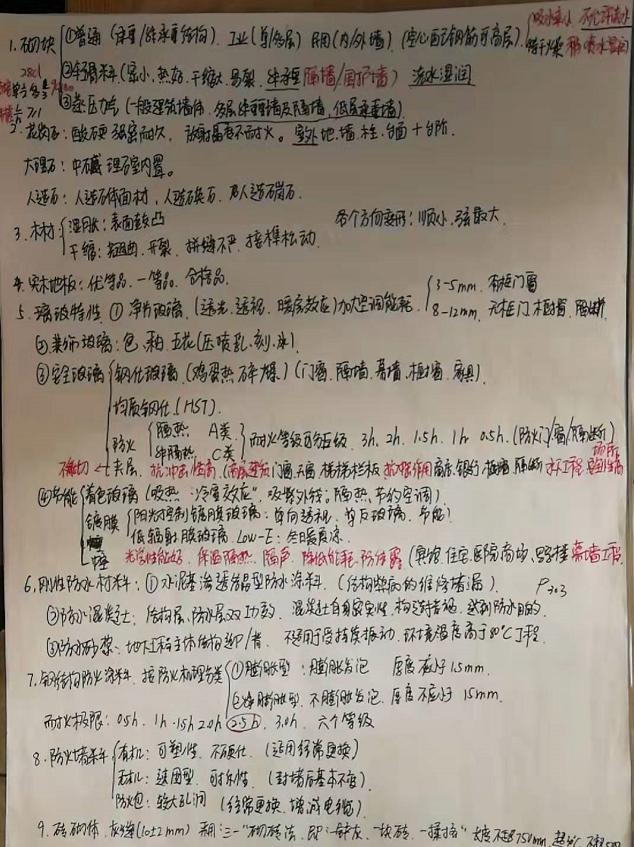 1.砌块 ①普通(承重/非承重结构) 工业(单/多层) 民用(内/外墙) (空心配钢筋可高层) 吸水率小 不允许浇水
②轻骨料(密小、热好、干缩大、易裂、非承重隔墙/围护墙) 浇水湿润
28d
③蒸压加气(一般建筑墙体、多层非承重墙及隔墙、低层承重墙)
2.花岗石:酸硬 强密耐久、放射晶不耐火。室外地.墙.柱.台面+台阶.
大理石:中 室内置。
人造石:人造石体面材,人造石英石.
3.木材 湿胀:表面鼓凸 各个方向变形:顺小、弦最大.
干缩:翘曲、开裂、拼缝不严、接榫松动.
4.实木地板:优等品.一等品.合格品.
5.玻璃特性 ①净片玻璃.(透光、透视、暖房效应)加大空调能耗. 3-5mm 有框门窗
8-12mm 无框门、橱窗、隔断
②装饰玻璃:(压喷乳、刻、冰).
③安全玻璃 钢化玻璃(鸡蛋热碎爆)(门窗、隔墙、幕墙、橱窗、家具).
均质钢化(HST).
防火 隔热 A类 耐火等级可分五级. 3h、2h、1.5h、1h 0.5h.(防火门/窗/隔断)
非隔热 C类
不能切←夹层. 抗冲击性高、(高层建筑门窗、天窗、楼梯栏板 银行 橱窗 隔断 水下工程
④节能 着色玻璃(吸热“冷室效应”、吸紫外线。隔热、节约空调).
镀膜 阳光控制镀膜玻璃:单向透视、单反玻璃.节能)
低辐射膜玻璃. Low-E:
中空 光学性能好、保温隔热、隔声、降低能耗、防结露(宾馆、住宅、医院、商场、写字楼 幕墙工程.
6.刚性防水材料:①水泥基渗透结晶型防水涂料.(结构 的维修堵漏). P303
②防水混凝土:结构层、防水层双功效、混凝土自身密实性 达到防水目的.
③防水砂浆:地下工程主体结构迎/背. 不适用于受持续振动、环境温度高于80℃工程
7.钢结构防火涂料.按防火机理分类 ①膨胀型:膨胀发泡 厚度不应小于1.5mm.
②非膨胀型.不膨胀发泡.厚度不应小于15mm.
耐火极限:0.5h、1h、1.5h 2.0h 2.5h、3.0h、六个等级
8.防火堵料 有机:可塑性、不硬化.(适用经常更换)
无机:速固型、可拆性(封堵后基本不变)
防火包:较大孔洞(经常更换、增减电缆)
9.砖砌体.灰缝(10±2mm) 采用“三一”砌砖法.即:一铲灰、一块砖、一揉挤” 长度不超750mm. 超30℃ 不超500